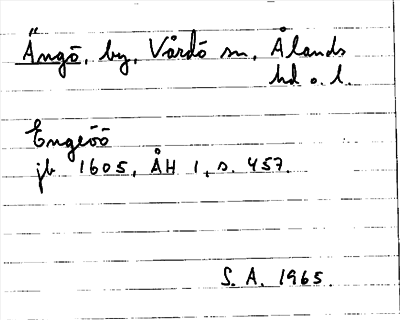 Ängö, by, Vårdö sn, Ålands
hd o. l.
Engeöö
jb 1605, ÅH 1, s. 457.
S. A. 1965.